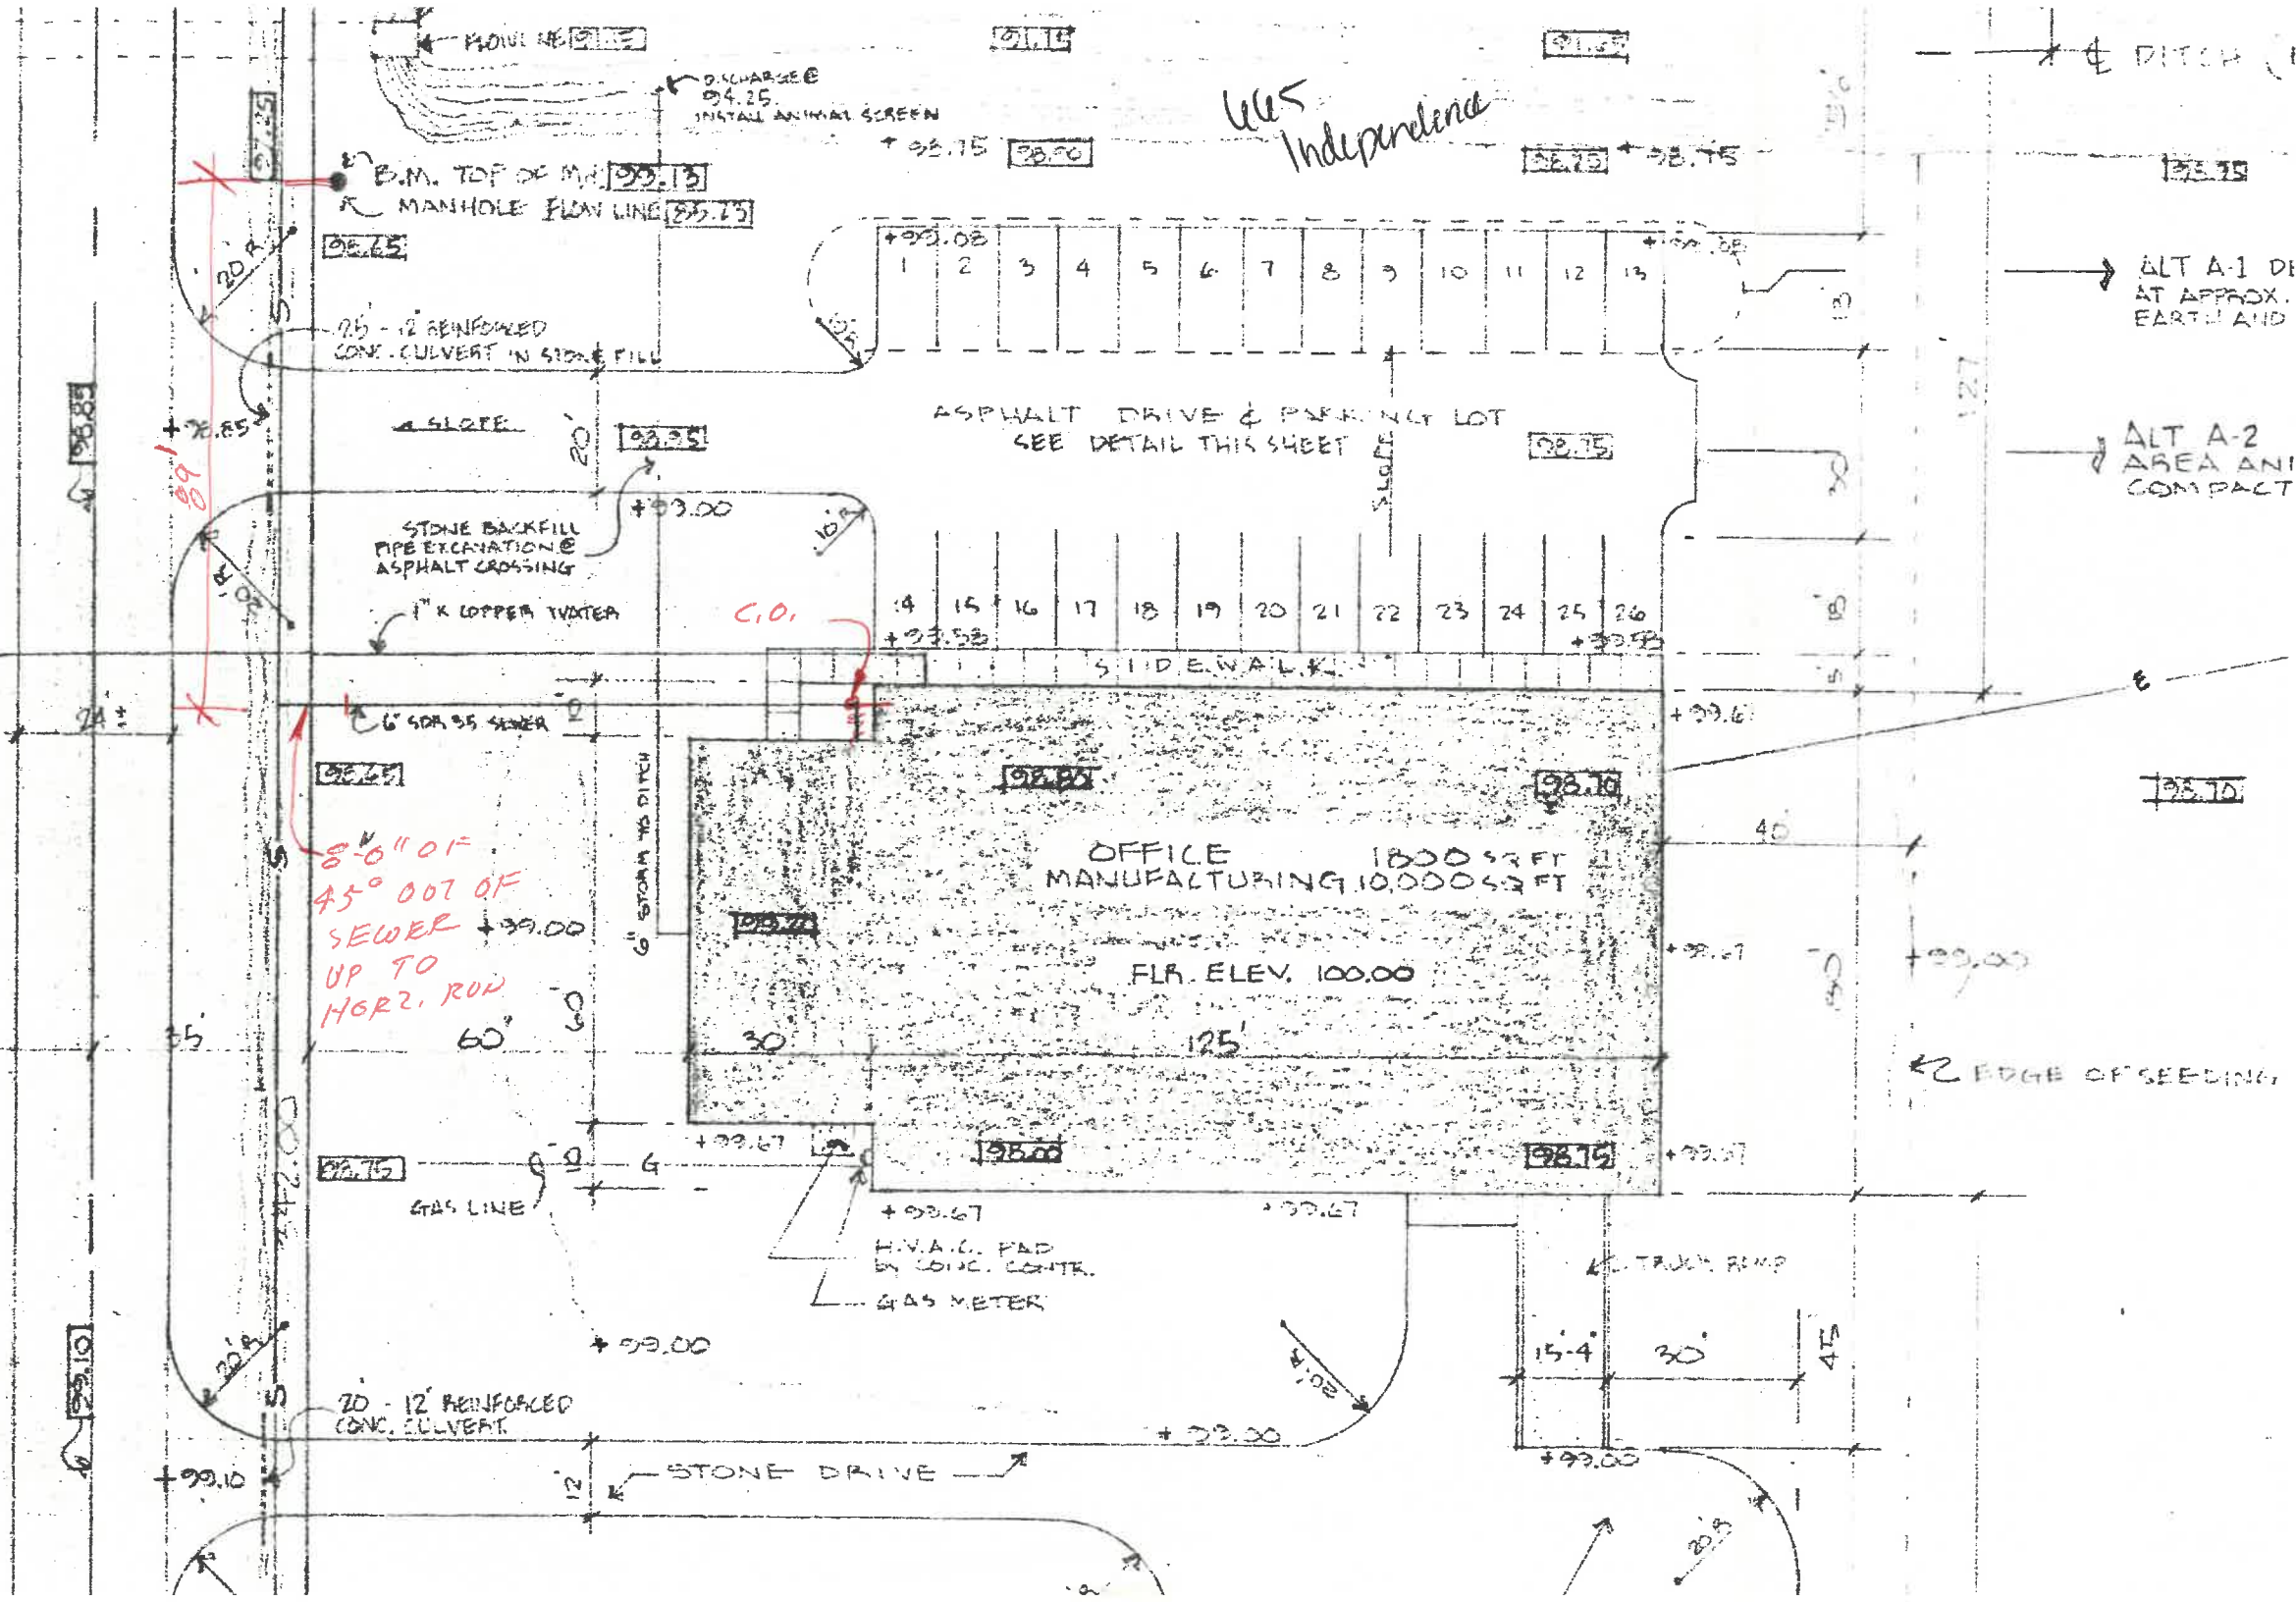 FLOWLINE
DISCHARGE @
94.25
INSTALL ANIMAL SCREEN
665
Independence
¢ DITCH
+ 98.75
+ 98.75
B.M. TOP OF MH 99.13
MANHOLE FLOW LINE 85.73
98.65
20' R
+99.08
1 2 3 4 5 6 7 8 9 10 11 12 13
ALT A-1
AT APPROX.
EARTH AND
25' - 12" REINFORCED
CONC. CULVERT IN STONE FILL
S
98.89
+98.85
SLOPE
20'
98.95
ASPHALT DRIVE & PARKING LOT
SEE DETAIL THIS SHEET
SLOPE
98.75
127
ALT A-2
AREA
COMPACT
89'
+99.00
10' R
STONE BACKFILL
PIPE EXCAVATION @
ASPHALT CROSSING
20' R
1" K COPPER WATER
C.O.
14 15 16 17 18 19 20 21 22 23 24 25 26
+99.58
+99.58
18'
SIDEWALK
5'
E
24'±
6" SDR 35 SEWER
10'
+99.67
98.65
98.80
98.70
98.70
6" STORM DITCH
8'-0" OF
45° OUT OF
SEWER
UP TO
HORZ. RUN
+99.00
OFFICE 1800 SQ FT
MANUFACTURING 10,000 SQ FT
FLR. ELEV. 100.00
40'
+99.67
80'
+99.00
S
35'
60'
60'
30'
125'
EDGE OF SEEDING
98.75
GAS LINE
10'
G
+99.67
98.75
+99.67
+99.67
+99.67
H.V.A.C. PAD
by CONC. CONTR.
GAS METER
TRUCK RAMP
+ 99.00
15'-4"
30'
45'
99.10
20' R
S
20' R
20' - 12" REINFORCED
CONC. CULVERT
+ 99.00
+99.00
+99.10
12'
STONE DRIVE
20' R